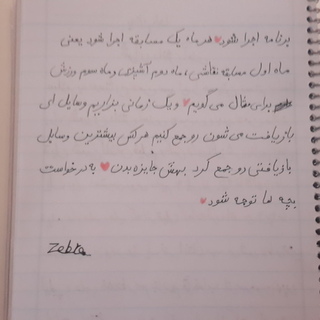 برنامه اجرا شود هر ماه یک مسابقه اجرا شود یعنی
ماه اول مسابقه نقاشی، ماه دوم آشپزی و ماه سوم ورزش
برای مثال می گویم و یک زمانی بذاریم وسایل ای
بازیافت می شون رو جمع کنیم هر کس بیشترین وسایل
بازیافتی رو جمع کرد بهش جایزه بدن به درخواست
بچه ها توجه شود
Zebra